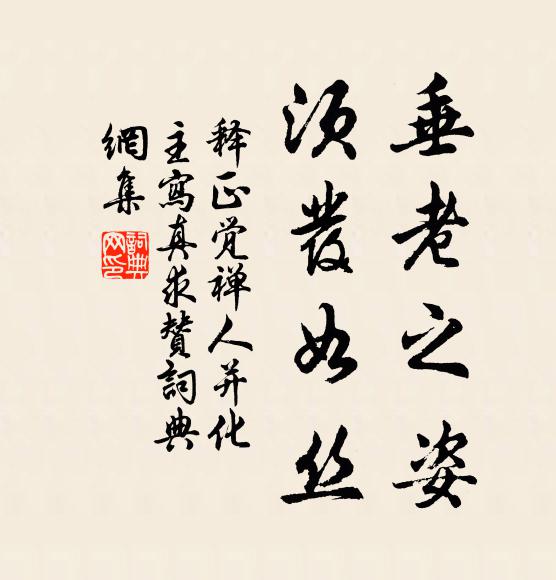 垂老之姿
须发如丝
释正觉禅人并化
主寫真求赞詞典
網集
詞典网印